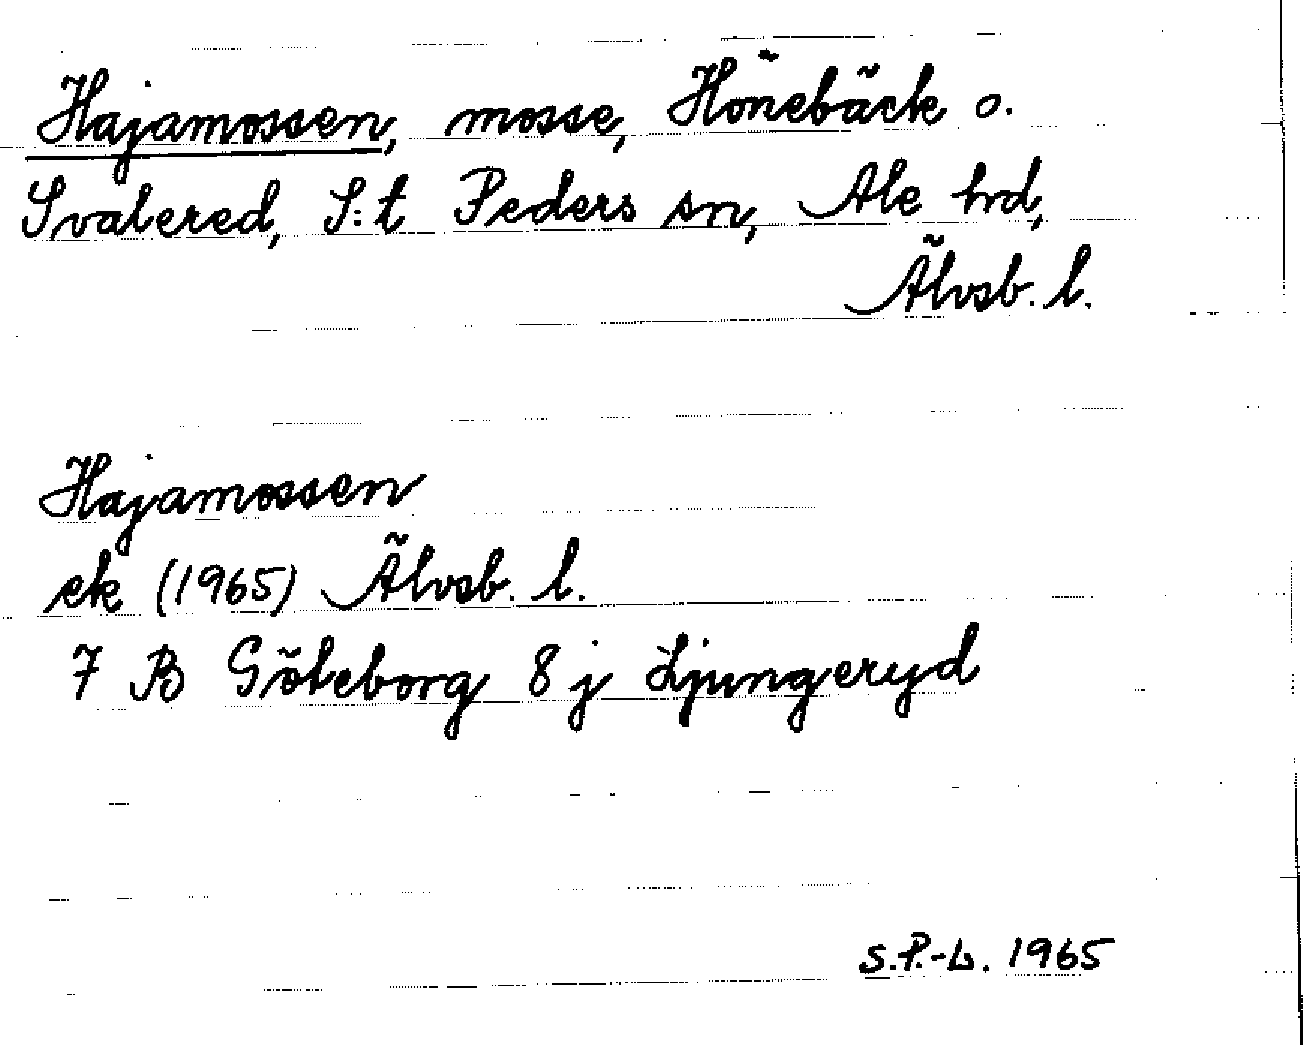 Hajamossen, mosse, Hönebäck o.
Svalered, S:t Peders sn, Ale hrd,
Älvsb. l.
Hajamossen
ek (1965) Älvsb. l.
7 B Göteborg 8 j Ljungeryd
S.P.-L. 1965